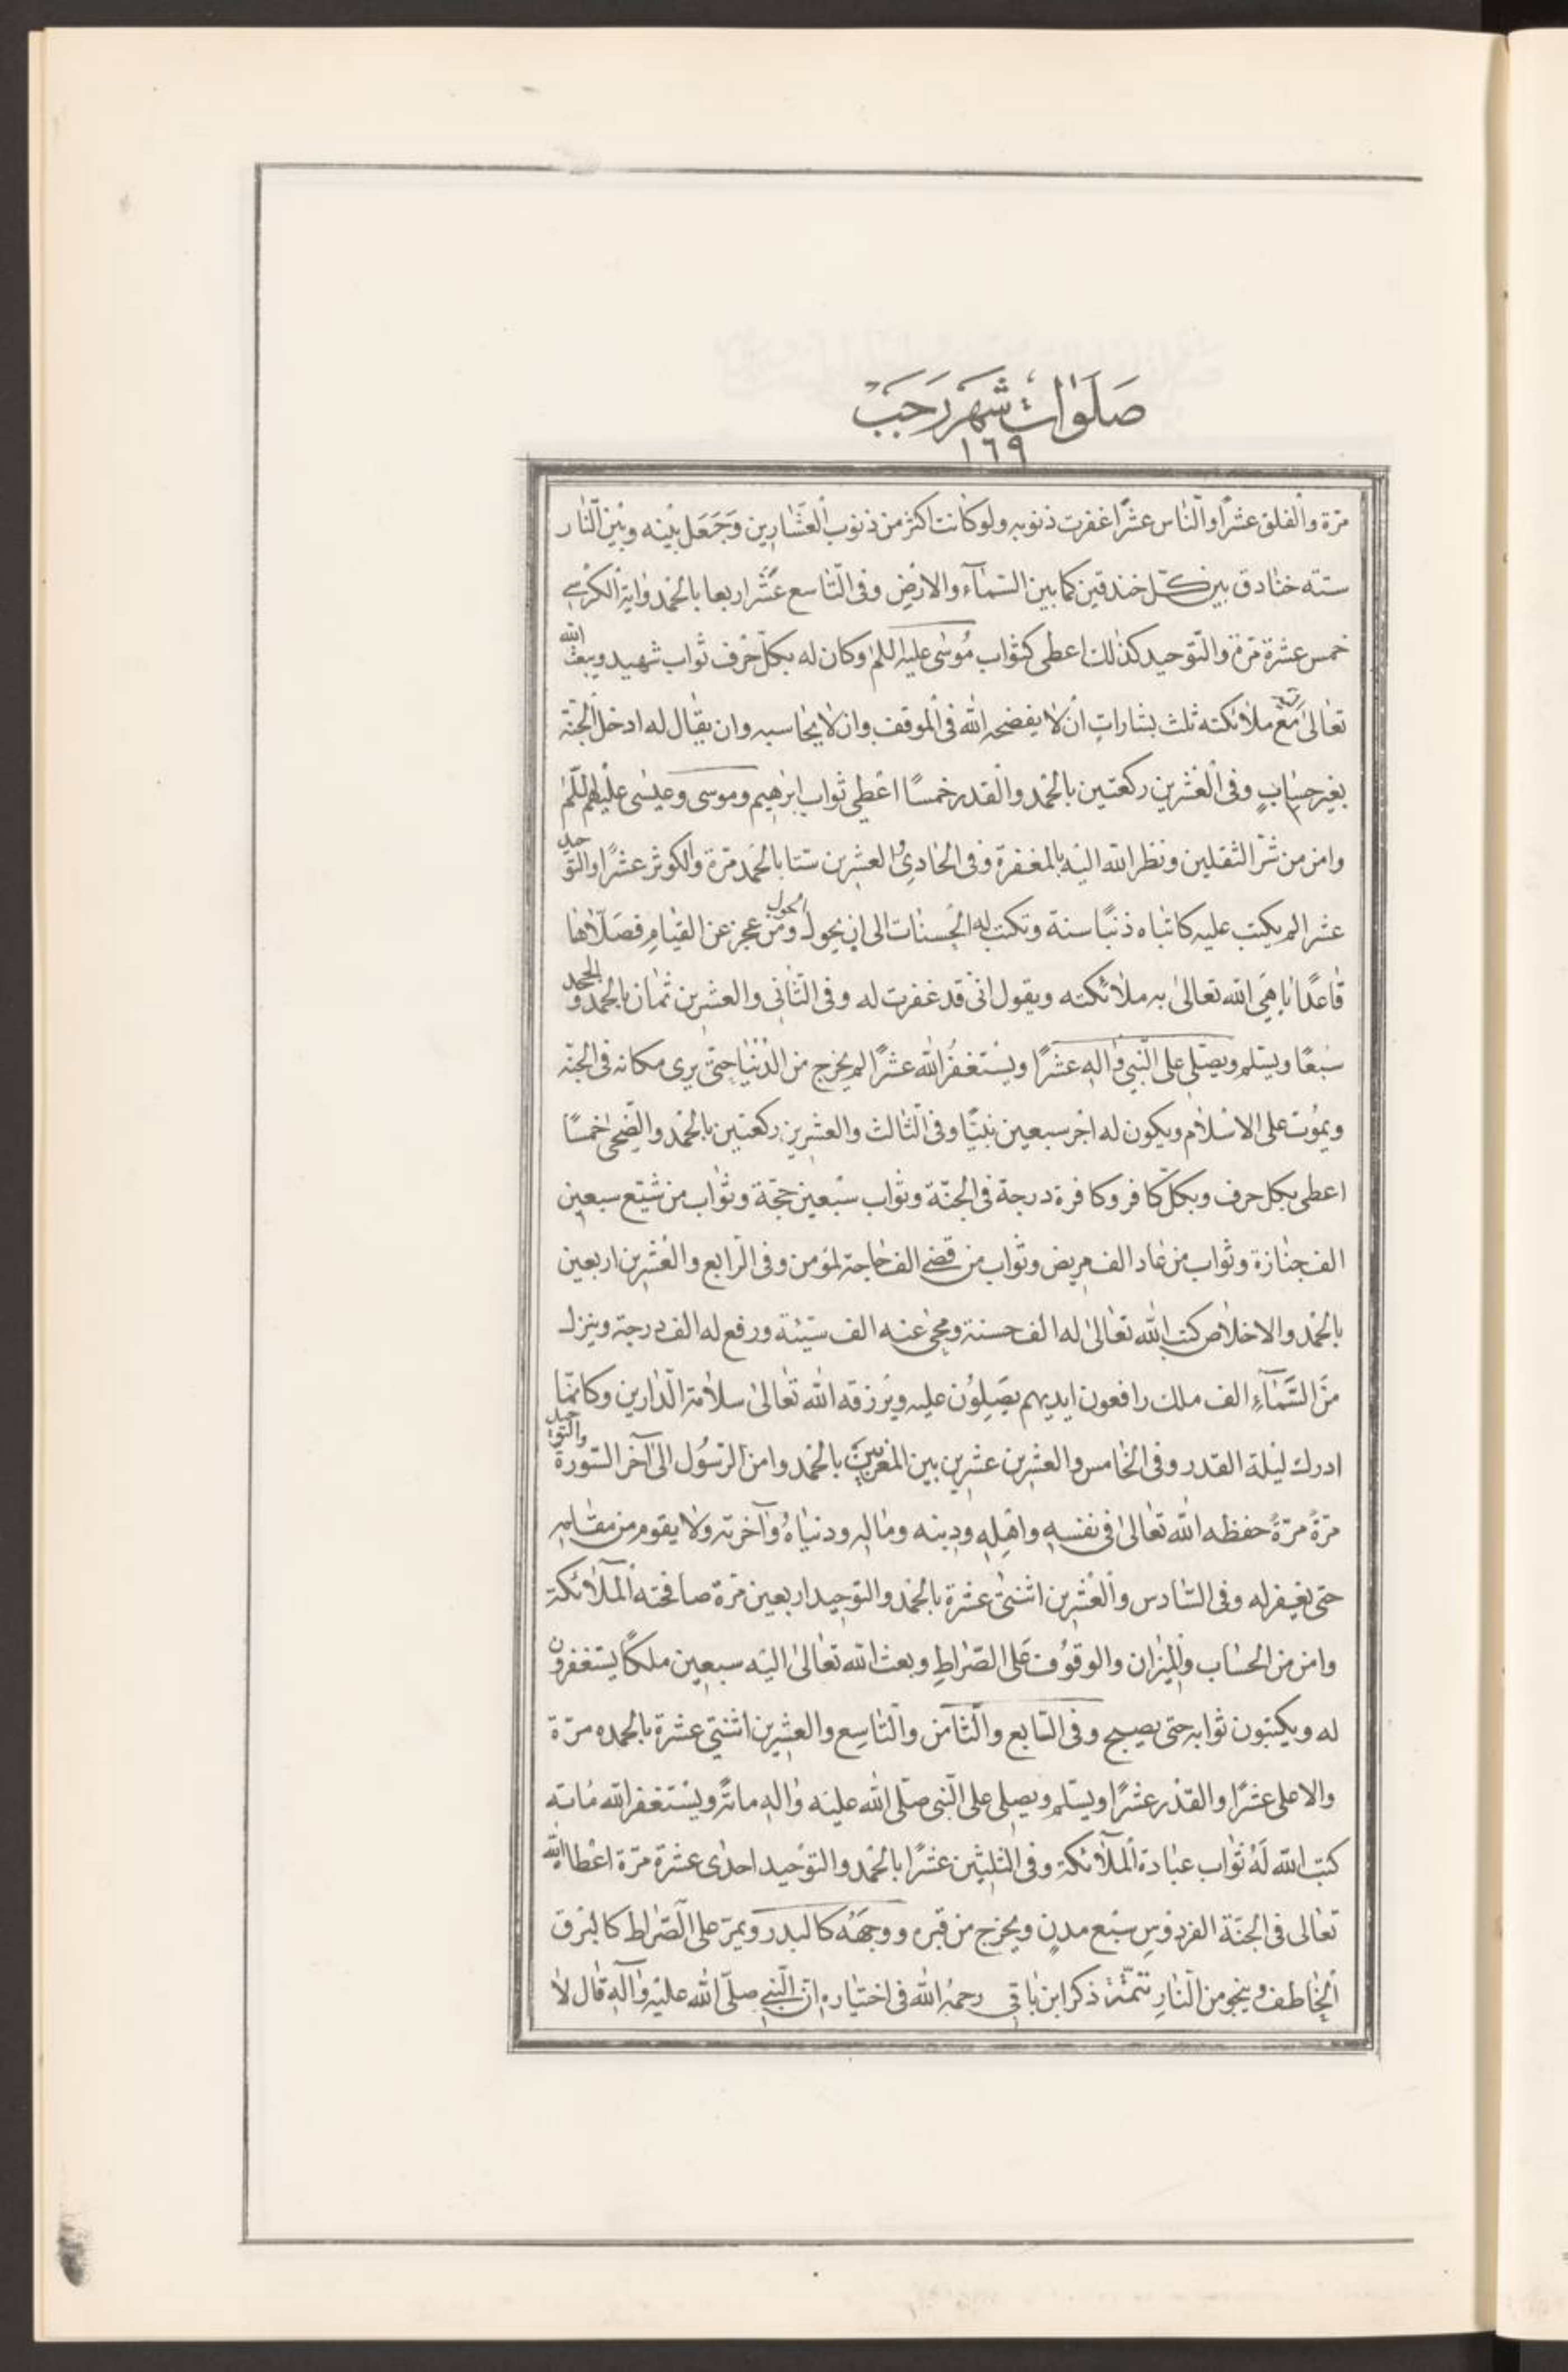 صَلَوٰاتْ شَهرِ رَجَبْ
١٦٩
مرّة والفلق عشرًا والنّاس عشرًا غفرت ذنوبه ولو كانت اكثر من ذنوب العشّارين وَجَعَل بينه وبين النّار
ستة خنادق بين كلّ خندقين كما بين السّمآء والارض وفى التّاسع عشر اربعا بالحمد واية الكرسى
خمس عشرة مرّة والتوحيد كذلك اعطى كثواب مُوسٰى عليه السلم وكان له بكلّ حرف ثواب شهيد ويبعث الله
تعالىٰ مع ملائكته ثلث بشارات ان لا يفضحه الله فى الموقف وان لا يحاسبه وان يقال له ادخل الجنّة
بغير حساب وفى العشرين ركعتين بالحمد والقدر خمسًا اعطى ثواب ابرٰهيم وموسى وعيسٰى عليهم السلم
وامن من شرّ الثقلين ونظر الله اليه بالمغفرة وفى الحادى والعشرين ستا بالحمد مرّة والكوثر عشرًا والتوحيد
عشرا لم يكتب عليه كاتباه ذنبًا سنة وتكتب له الحسنات الى ان يحول الحول ومن عجز عن القيام فصلّاها
قاعدًا باهى الله تعالىٰ به ملائكته ويقول انى قد غفرت له وفى الثّانى والعشرين ثمان بالحمد والجحد
سبعًا ويسلم ويصلى على النّبى واله عشرًا ويستغفر الله عشرًا لم يخرج من الدّنيا حتى يرى مكانه فى الجنّة
ويموت على الاسلام ويكون له اجر سبعين نبيًّا وفى الثالث والعشرين ركعتين بالحمد والضحى خمسًا
اعطى بكل حرف وبكلّ كافر وكافرة درجة فى الجنّة وثواب سبعين حجّة وثواب من شيّع سبعين
الف جنازة وثواب من عاد الف مريض وثواب من قضى الف حاجة لمؤمن وفى الرّابع والعشرين اربعين
بالحمد والاخلاص كتب الله تعالىٰ له الف حسنة ومحى عنه الف سيّئة ورفع له الف درجة وينزل
من السّمآءِ الف ملك رافعون ايديهم يصلون عليه ويرزقه الله تعالىٰ سلامة الدّارين وكانّما
ادرك ليلة القدر وفى الخامس والعشرين عشرين بين المغربين بالحمد وامن الرّسول الى آخر السّورة والتوحيد
مرّةً مرّةً حفظه الله تعالىٰ فى نفسه واهله ودينه وماله ودنياهُ وآخرته ولا يقوم من مقامه
حتى يغفر له وفى السّادس والعشرين اثنتى عشرة بالحمد والتوحيد اربعين مرّة صافحته الملآئكة
وامن من الحساب والميزان والوقوف على الصّراط وبعث الله تعالىٰ اليه سبعين ملكًا يستغفرون
له ويكتبون ثوابه حتى يصبح وفى السّابع والثّامن والتّاسع والعشرين اثنتى عشرة بالحمده مرّة
والاعلى عشرًا والقدر عشرًا ويسلم ويصلى على النّبى صلّى الله عليه واله مائة ويستغفر الله مائة
كتب الله لَهُ ثواب عبادة الملآئكة وفى الثلثين عشرًا بالحمد والتوحيد احدى عشرة مرّة اعطاه الله
تعالى فى الجنّة الفردوس سبع مدن ويخرج من قبره ووجهه كالبدر ويمرّ على الصّراط كالبرق
الخاطف وينجو من النّار تتمّة ذكر ابن باقى رحمه الله فى اختياره انّ النّبى صلّى الله عليه وآله قال لا